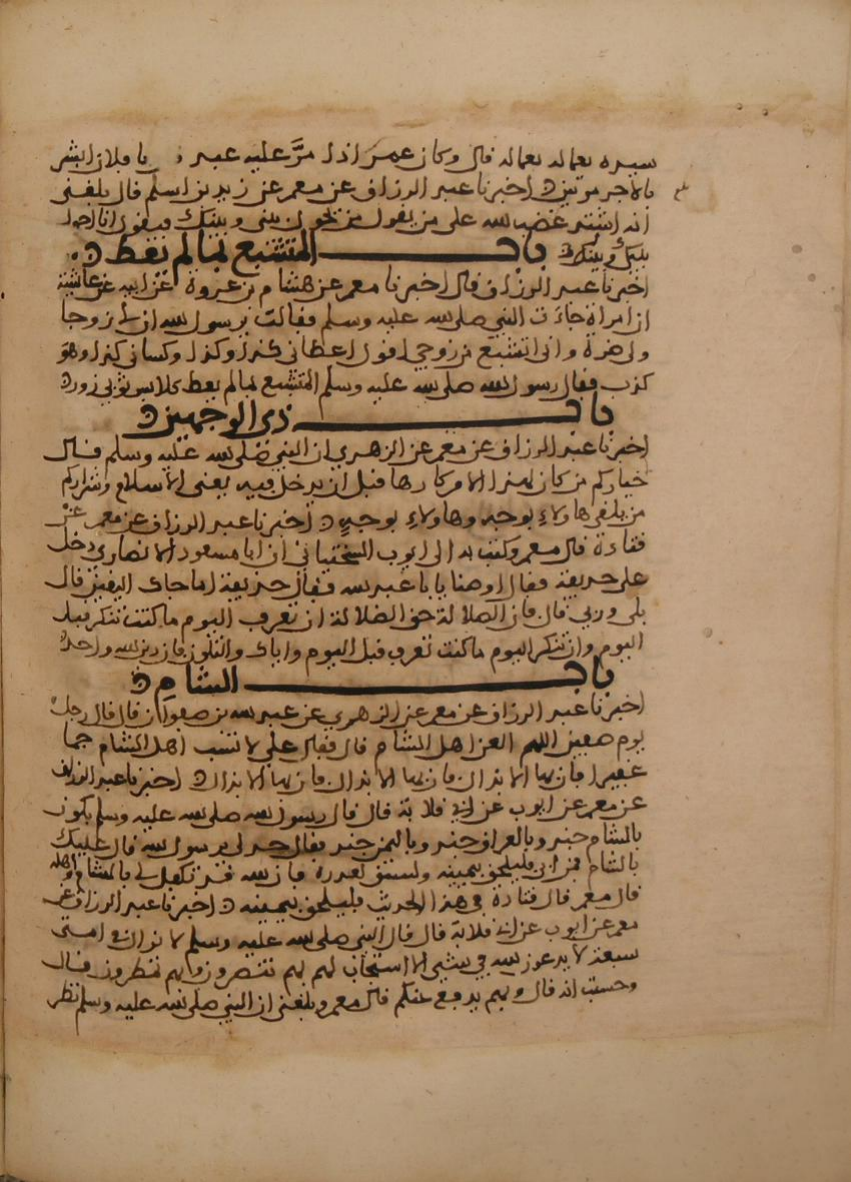 سيده نعما له نعما له قال وكان عمر اذا مر عليه عبد قال يا فلان ابشر
بالاجر مرتين اخبرنا عبد الرزاق عن معمر عن زيد بن اسلم قال بلغني
انه اشتد غضب الله على من يقول من يحول بيني وبينك ويقول انا احول
بينك وبينه
باب المتشبع بما لم يعط
اخبرنا عبد الرزاق قال اخبرنا معمر عن هشام بن عروة عن ابيه عن عائشة
ان امراة جاءت النبي صلى الله عليه وسلم فقالت يرسول الله ان لي زوجا
ولي ضرة واني اتشبع من زوجي اقول اعطاني كذا وكذا وكساني كذا وهو
كذب فقال رسول الله صلى الله عليه وسلم المتشبع بما لم يعط كلابس ثوبي زور
باب ذي الوجهين
اخبرنا عبد الرزاق عن معمر عن الزهري ان النبي صلى الله عليه وسلم قال
خياركم من كان لهذا الامر كارها قبل ان يدخل فيه يعني الاسلام وشراركم
من يلقى هاولاء بوجه وهاولاء بوجه اخبرنا عبد الرزاق عن معمر عن
قتادة قال معمر وكتب به الى ايوب السختياني ان ابا مسعود الانصاري دخل
على حذيفة فقال اوصنا يا با عبد الله فقال حذيفة اما جاك اليقين قال
بلى وربي قال فان الضلالة حق الضلالة ان تعرف اليوم ما كنت تنكر قبل
اليوم وان تنكر اليوم ما كنت تعرف قبل اليوم واياك والتلون فان دين الله واحد
باب الشام
اخبرنا عبد الرزاق عن معمر عن الزهري عن عبد الله بن صفوان قال قال رجل
يوم صفين اللهم العن اهل الشام قال فقال علي لا تسب اهل الشام جما
غفيرا فان بها الابدال فان بها الابدال فان بها الابدال اخبرنا عبد الرزاق
عن معمر عن ايوب عن ابي قلابة قال قال رسول الله صلى الله عليه وسلم يكون
بالشام جند وبالعراق جند وباليمن جند فقال رجل خر لي يرسول الله قال عليك
بالشام فمن ابى فليلحق بيمينه وليستق بغدره فان الله قد تكفل لي بالشام واهله
قال معمر قال قتادة في هذا الحديث فليلحق بيمينه اخبرنا عبد الرزاق عن
معمر عن ايوب عن ابي قلابة قال قال النبي صلى الله عليه وسلم لا يزال في امتي
سبعة لا يدعون الله في شيء الا استجاب لهم بهم تنصرون وبهم تمطرون قال
وحسبت انه قال وبهم يدفع عنكم قال معمر وبلغني ان النبي صلى الله عليه وسلم نظر